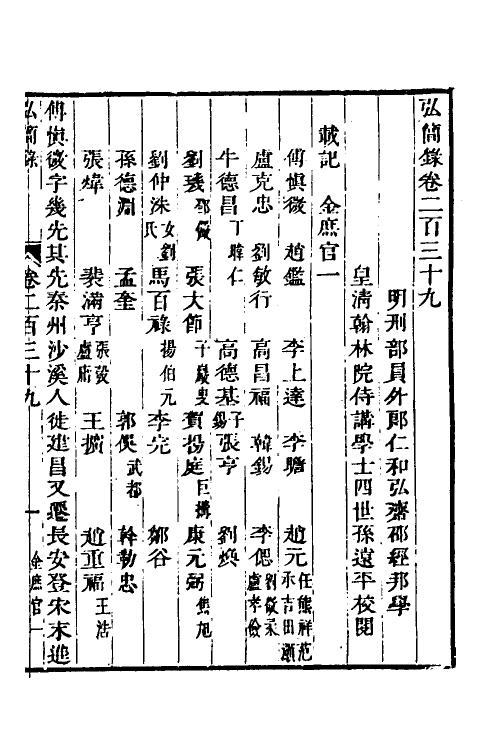 弘簡錄卷二百三十九
明刑部員外郎仁和弘齋邵經邦學
皇淸翰林院侍講學士四世孫遠平校閱
載記　金庶官一
傅慎微　趙鑑　李上達　李瞻　趙元任熊祥范承吉田灝
盧克忠　劉敏行　高昌福　韓錫　李偲劉徽柔盧孝儉
牛德昌丁暐仁　高德基子錫　張亨　劉煥
劉璣邵徽　張大節子巖叟　賀揚庭巨構　康元弼焦旭
劉仲洙女劉氏　馬百祿楊伯元　李完　鄒谷
孫德淵　孟奎　郭俁武都　幹勒忠
張煒　裴滿亨張瑴盧庸　王擴　趙重福王浩
傅慎微字幾先其先秦州沙溪人徙建昌又遷長安登宋末進
弘簡錄　卷二百三十九　一　金庶官一